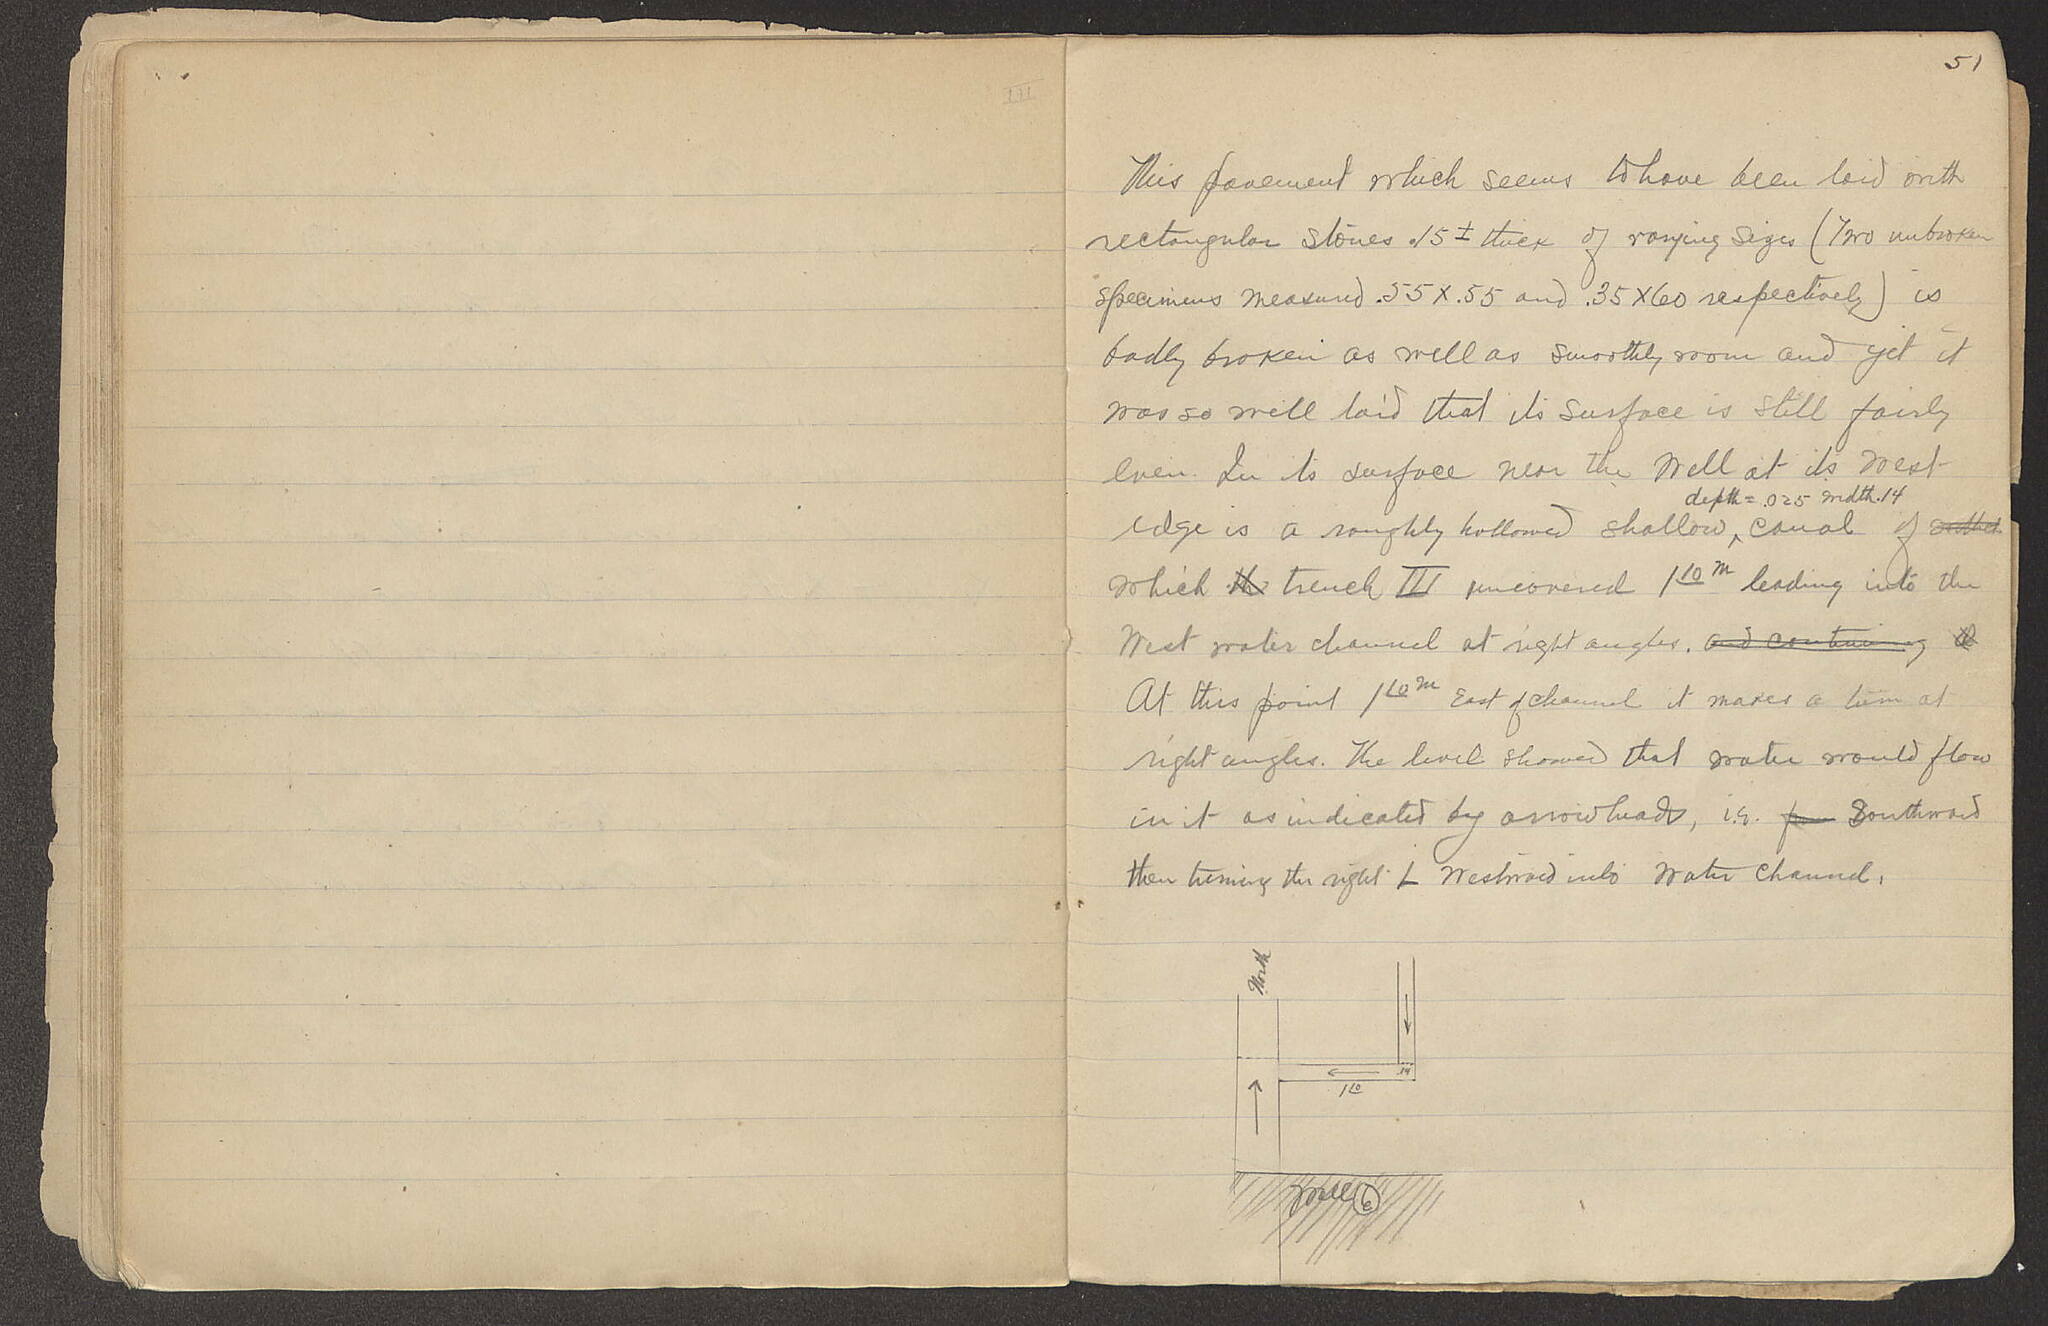 III
51
This pavement which seems to have been laid with
rectangular stones .15± thick of varying sizes (Two unbroken
specimens measured .55 X .55 and .35 X 60 respectively) is
badly broken as well as smoothly worn and yet it
was so well laid that its surface is still fairly
even. In its surface near the Well at its West
depth = .025 width .14
edge is a roughly hollowed shallow ‸ canal of
which trench III uncovered 1 10 m leading into the
West water channel at right angles. and containing
At this point 1 10 m East of channel it makes a turn at
right angles. The level showed that water would flow
in it as indicated by arrowheads, i.e. Southward
then turning the right L Westward into Water Channel.
North
.14
1 10
6